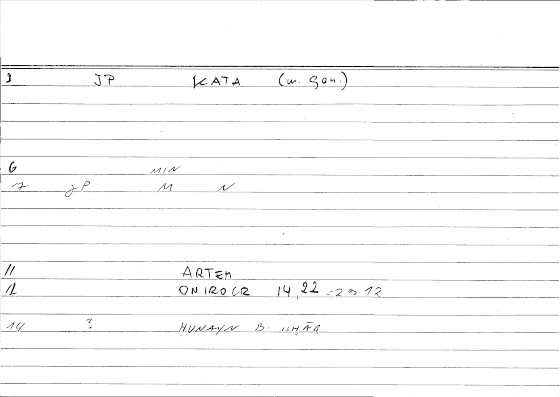 1 JP KATA (w. Gen.)
6 MIN
7 JP M N
11 ARTEM
12 ONIROCR 14,22 - 23.12
14 ? ḤUNAYN B. ISḤĀQ